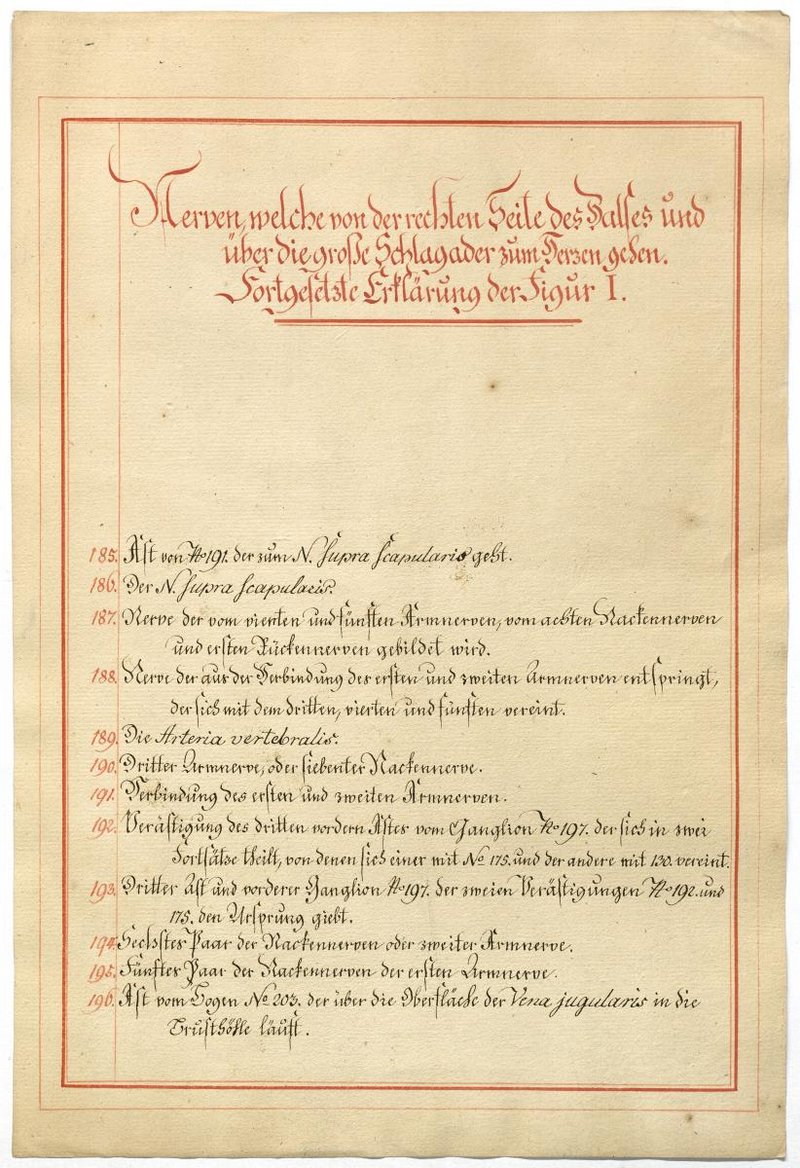 Nerven, welche von der rechten Seite des Halses und
über die große Schlagader zum Herzen gehen.
Fortgesetzte Erklärung der Figur I.
185. Ast von No 191. der zum N. Supra Scapularis geht.
186. Der N. Supra Scapularis.
187. Nerve der vom vierten und fünften Armnerven, vom achten Nackennerven
und ersten Rückennerven gebildet wird.
188. Nerve der aus der Verbindung des ersten und zweiten Armnerven entspringt,
der sich mit dem dritten, vierten und fünften vereint.
189. Die Arteria vertebralis.
190. Dritter Armnerve, oder siebenter Nackennerve.
191. Verbindung des ersten und zweiten Armnerven.
192. Verästigung des dritten vordern Astes vom Ganglion No 197. der sich in zwei
Fortsätze theilt, von denen sich einer mit No 175. und der andere mit 130. vereint.
193. Dritter Ast und vorderer Ganglion No 197. der zweien Verästigungen No 192. und
175. den Ursprung giebt.
194. Sechstes Paar der Nackennerven oder zweiter Armnerve.
195. Fünftes Paar der Nackennerven der ersten Armnerve.
196. Ast vom Bogen No 203. der über die Oberfläche der Vena jugularis in die
Brusthöhle läuft.